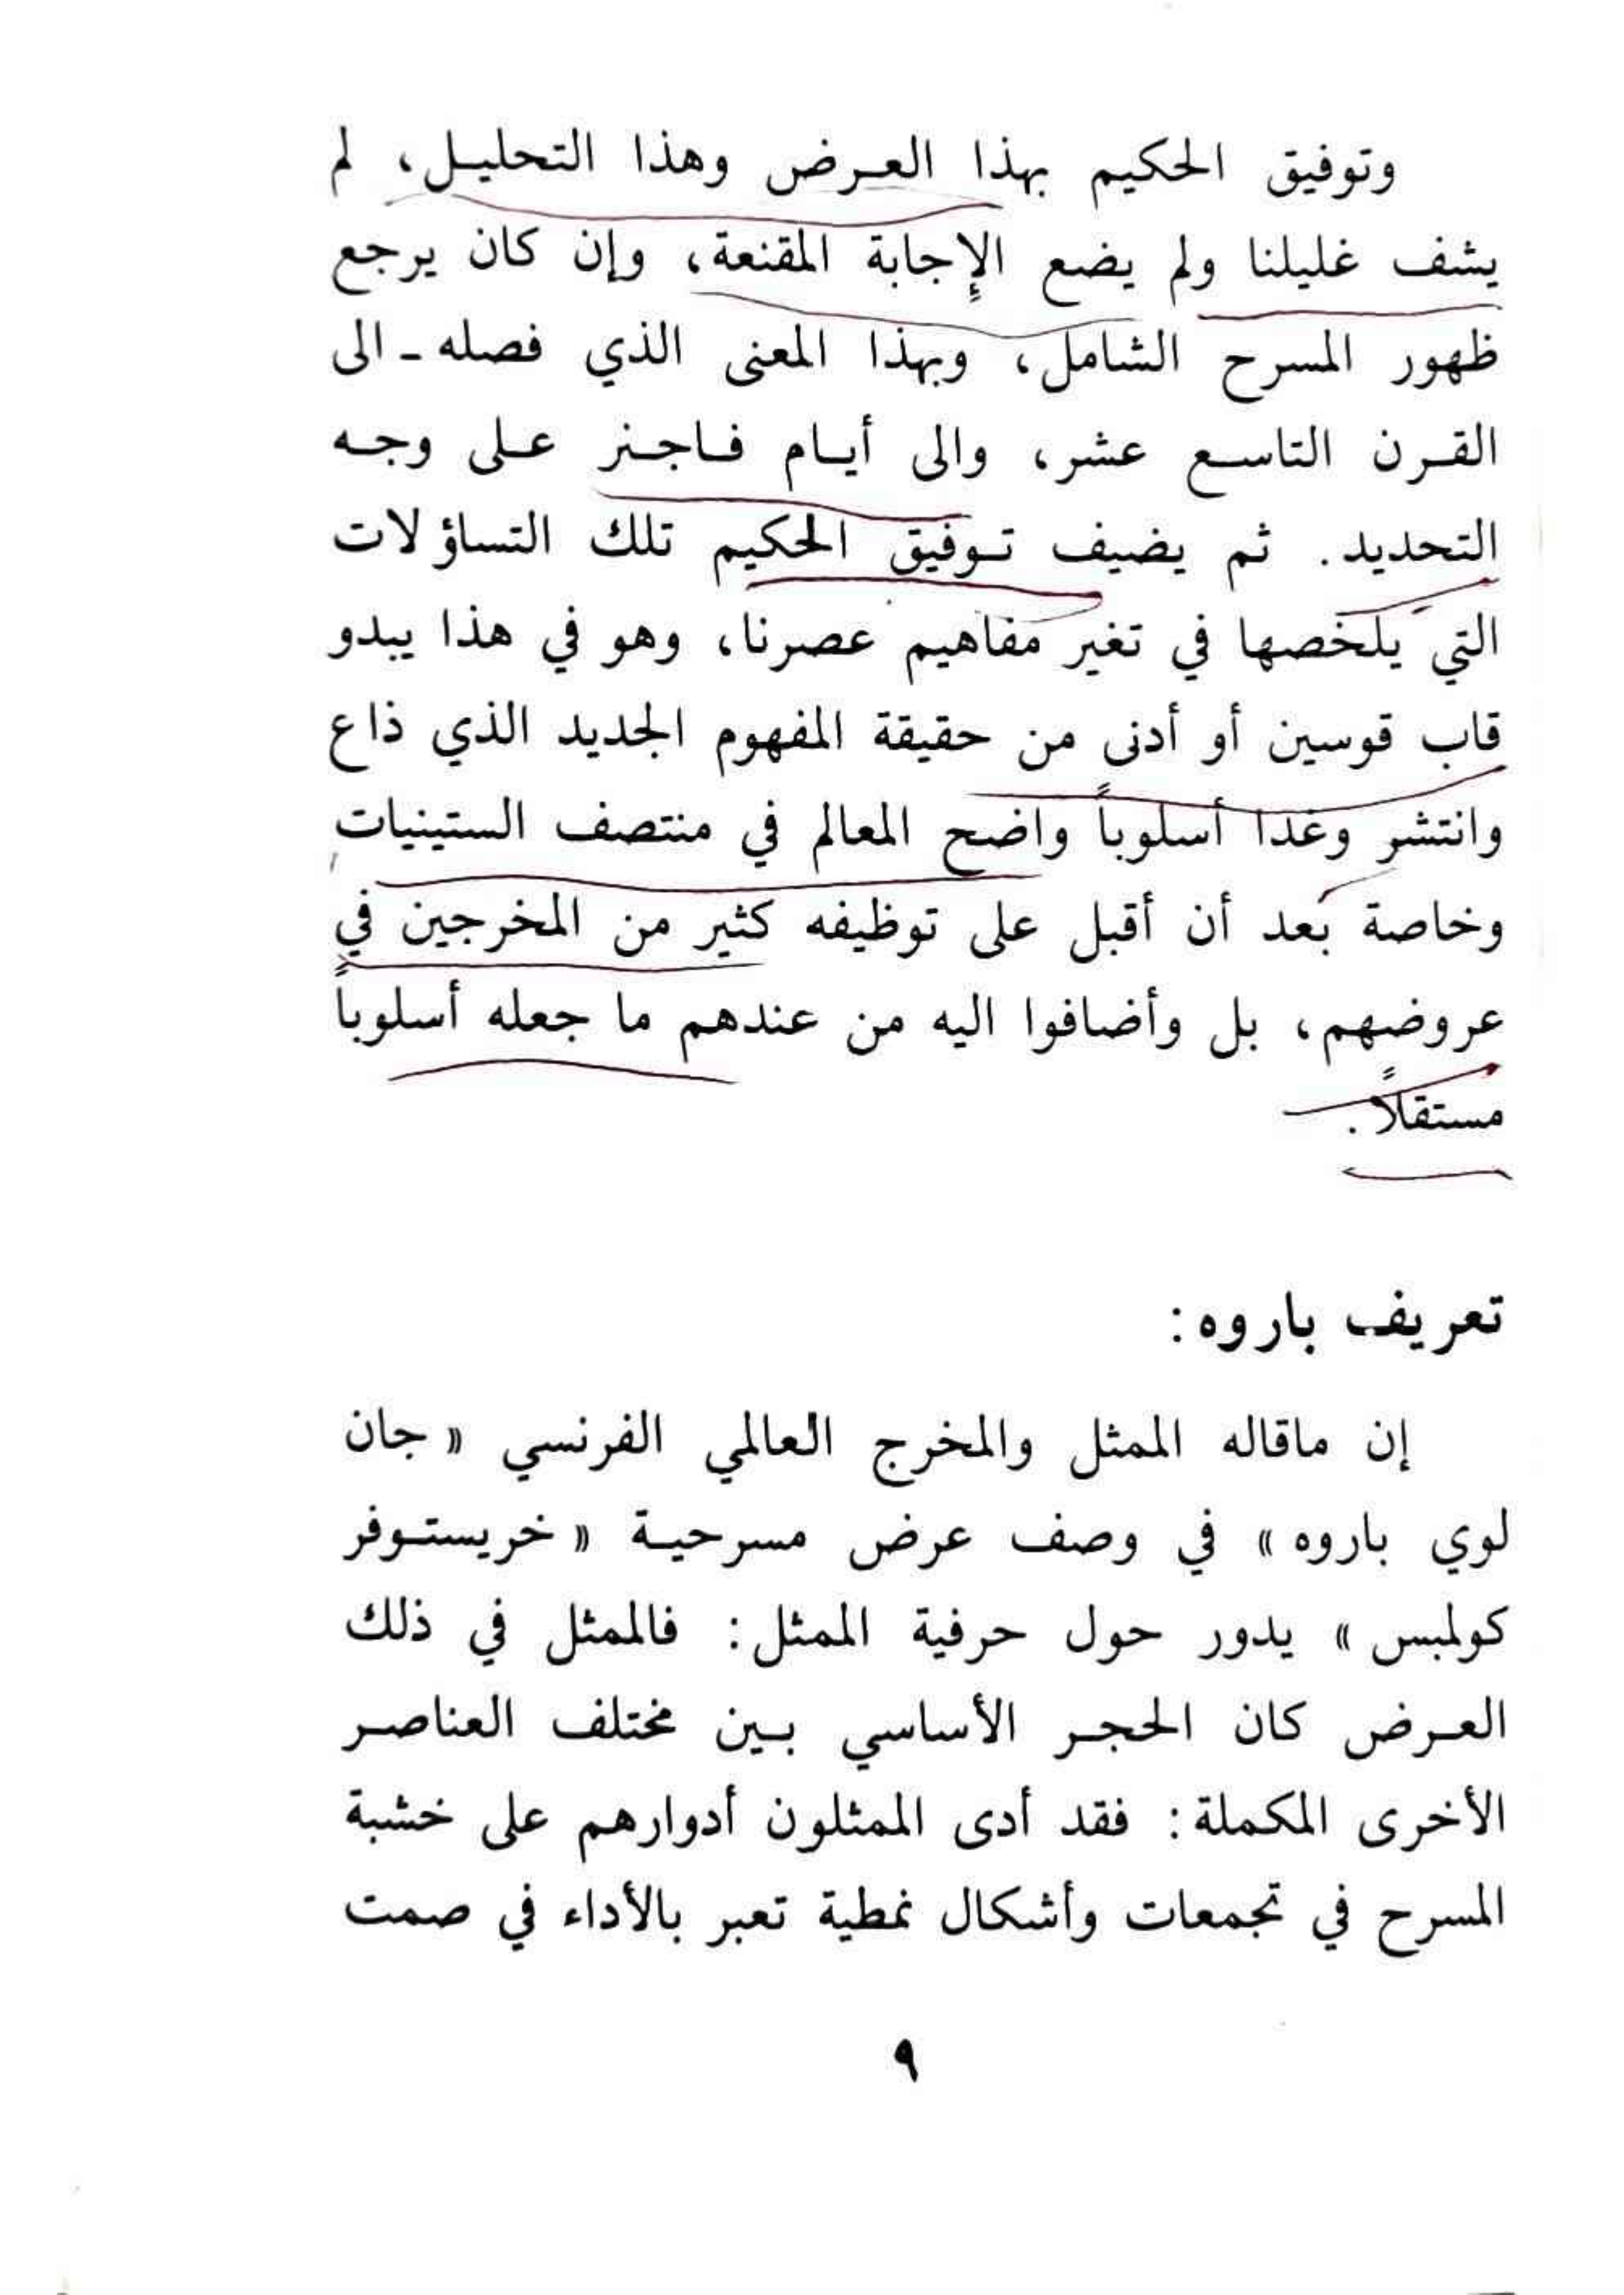 وتوفيق الحكيم بهذا العرض وهذا التحليل، لم
يشف غليلنا ولم يضع الإجابة المقنعة، وإن كان يرجع
ظهور المسرح الشامل، وبهذا المعنى الذي فصله ـ الى
القرن التاسع عشر، والى أيام فاجنر على وجه
التحديد. ثم يضيف توفيق الحكيم تلك التساؤلات
التي يلخصها في تغير مفاهيم عصرنا، وهو في هذا يبدو
قاب قوسين أو أدنى من حقيقة المفهوم الجديد الذي ذاع
وانتشر وغدا أسلوباً واضح المعالم في منتصف الستينيات
وخاصة بعد أن أقبل على توظيفه كثير من المخرجين في
عروضهم، بل وأضافوا اليه من عندهم ما جعله أسلوباً
مستقلاً.
تعريف باروه:
إن ماقاله الممثل والمخرج العالمي الفرنسي « جان
لوي باروه » في وصف عرض مسرحية « خريستوفر
كولمبس » يدور حول حرفية الممثل: فالممثل في ذلك
العرض كان الحجر الأساسي بين مختلف العناصر
الأخرى المكملة: فقد أدى الممثلون أدوارهم على خشبة
المسرح في تجمعات وأشكال نمطية تعبر بالأداء في صمت
٩